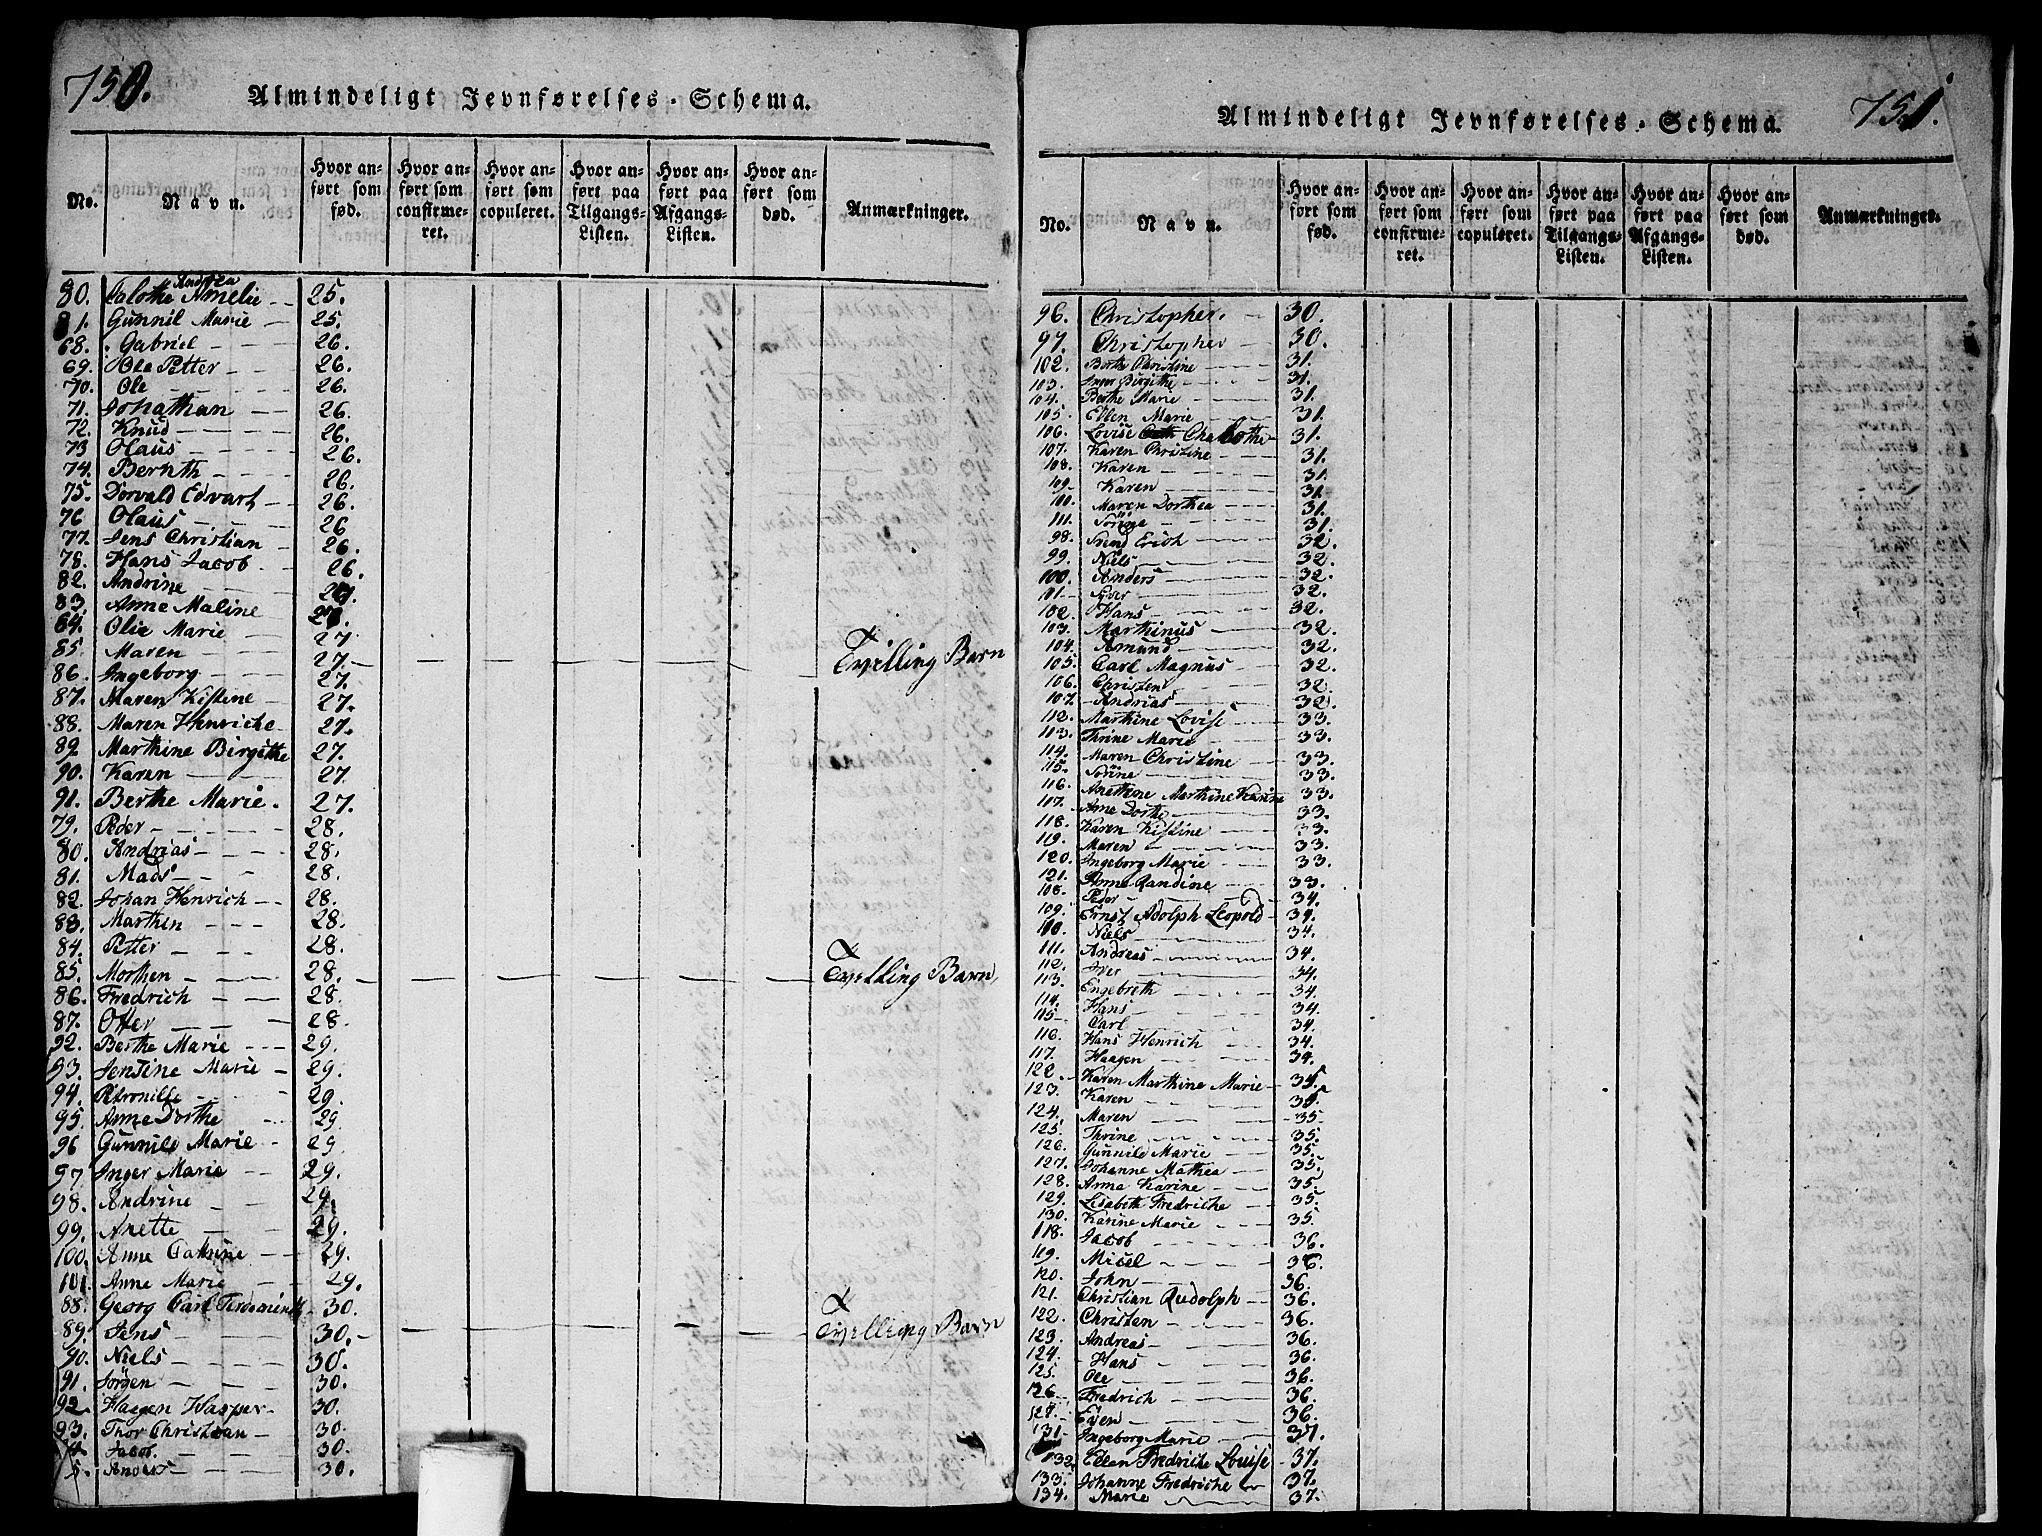 750.
Almindeligt Jevnførelses-Schema.
No. Navn. Hvor anført som fød. Hvor anført som confirmeret. Hvor anført som copuleret. Hvor anført paa Tilgangs-Listen. Hvor anført paa Afgangs-Listen. Hvor anført som død. Anmærkninger.
80. Calothe Andrea Amelie 25.
81. Gunnil Marie 25.
68. Gabriel 26.
69. Ole Petter 26.
70. Ole 26.
71. Johathan 26.
72. Knud 26.
73 Olaus 26.
74. Bernth 26.
75. Dorvald Edvart 26.
76 Olaus 26
77. Jens Christian 26.
78. Hans Jacob 26.
82. Andrine 27.
83. Anne Maline 27.
84. Olie Marie 27
85. Maren 27. Tvilling Barn
86. Ingeborg 27.
87. Maren Kistine 27.
88. Maren Henriche 27.
89 Marthine Birgithe 27.
90. Karen 27.
91. Berthe Marie 27.
79. Peder 28.
80. Andrias 28.
81. Mads 28.
82. Johan Henrich 28.
83. Marthin 28.
84. Petter 28.
85. Morthen 28. Tvilling Barn
86. Fredrich 28.
87. Otter 28.
92. Berthe Marie 29.
93. Jensine Marie 29.
94. Petronille 29.
95. Anne Dorthe 29.
96 Gunnild Marie 29.
97. Inger Marie 29.
98. Andrine 29.
99. Anette 29.
100. Anne Cathrine 29.
101. Anne Marie 29.
88. Georg Carl Ferdeminth 30.
89. Jens 30. Tvilling Barn
90. Niels 30.
91. Jörgen 30.
92. Haagen Wasper 30.
93. Thor Christian 30.
Jacob 30.
Anders 30.
751.
Almindeligt Jevnførelses-Schema.
No. Navn. Hvor anført som fød. Hvor anført som confirmeret. Hvor anført som copuleret. Hvor anført paa Tilgangs-Listen. Hvor anført paa Afgangs-Listen. Hvor anført som død. Anmærkninger.
96. Christopher 30.
97. Christopher 30.
102. Berthe Christine 31.
103. Inger Birgithe 31.
104. Berthe Marie 31.
105. Ellen Marie 31.
106. Lovise Chalothe 31.
107. Karen Christine 31.
108. Karen 31.
109. Karen 31.
100. Maren Dorthea 31.
111. Sörine 31.
98. Svend Erich 32.
99. Niels 32.
100. Anders 32.
101. Syver 32.
102. Hans 32.
103. Marthinus 32.
104. Amund 32.
105. Carl Magnus 32.
106. Christen 32.
107. Andrias 32.
112. Marthine Lovise 33.
113. Thrine Marie 33.
114. Maren Christine 33.
115. Sörine 33.
116. Anethone Marthine Karine 33.
107. Ane Dorthe 33.
118. Karen Kistine 33.
119. Maren 33.
120. Ingeborg Marie 33.
121. Anne Randine 33.
108. Peder 34.
109. Ernst Adolph Leopold 34.
110. Niels 34.
111. Andreas 34.
112. Iver 34.
113. Engebreth 34.
114. Hans 34.
115. Carl 34.
116. Hans Henrich 34.
117. Haagen 34.
122. Karen Marthine Marie 35.
123. Karen 35.
124. Maren 35.
125. Thrine 35.
126. Gunnild Marie 35.
127. Johanne Mathea 35.
128. Anna Karine 35.
129. Lisabeth Fredriche 35.
130. Karine Marie 35.
118. Jacob 36.
119. Misel 36.
120. John 36.
121. Christian Rudolph 36.
122. Christen 36.
123. Andreas 36.
124. Hans 36.
125. Ole 36.
126. Fredrich 36.
127. Even 36.
131. Ingeborg Marie 37.
132. Ellen Fredriche Louise 37.
133. Johanne Fredriche 37.
134. Marie 37.